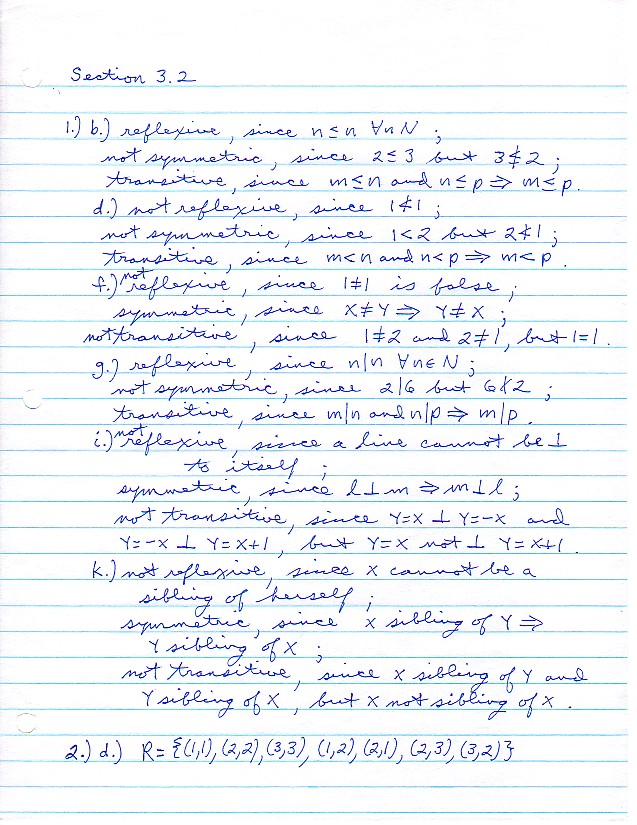 Section 3.2
1.) b.) reflexive, since n≤n ∀n N ;
not symmetric, since 2≤3 but 3≰2 ;
transitive, since m≤n and n≤p ⇒ m≤p.
d.) not reflexive, since 1≮1 ;
not symmetric, since 1<2 but 2≮1 ;
transitive, since m<n and n<p ⇒ m<p.
f.) not reflexive, since 1≠1 is false ;
symmetric, since X≠Y ⇒ Y≠X ;
not transitive, since 1≠2 and 2≠1, but 1=1.
g.) reflexive, since n|n ∀n∈N ;
not symmetric, since 2|6 but 6∤2 ;
transitive, since m|n and n|p ⇒ m|p.
i.) not reflexive, since a line cannot be ⊥
to itself ;
symmetric, since l⊥m ⇒ m⊥l ;
not transitive, since Y=X ⊥ Y=-X and
Y=-X ⊥ Y=X+1, but Y=X not ⊥ Y=X+1.
k.) not reflexive, since x cannot be a
sibling of herself ;
symmetric, since x sibling of Y ⇒
Y sibling of X ;
not transitive, since x sibling of Y and
Y sibling of X, but x not sibling of x.
2.) d.) R= {(1,1), (2,2), (3,3), (1,2), (2,1), (2,3), (3,2)}